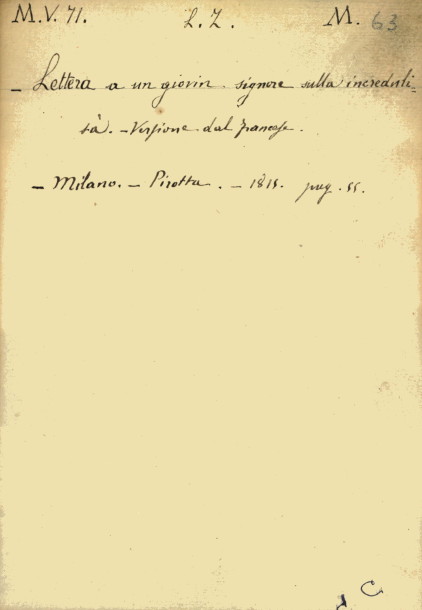 M.V. 71. L. Z. M. 63
– Lettera a un giovin signore sulla increduli-
tà. – Versione dal francese.
– Milano. – Pirotta. – 1815. pag. 55.
C